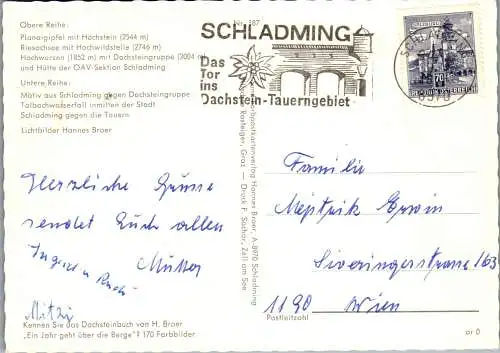 Obere Reihe:
Planaigipfel mit Höchstein (2544 m)
Riesachsee mit Hochwildstelle (2746 m)
Hochwurzen (1852 m) mit Dachsteingruppe (3004 m)
und Hütte der ÖAV-Sektion Schladming
Untere Reihe:
Motiv aus Schladming gegen Dachsteingruppe
Talbachwasserfall inmitten der Stadt
Schladming gegen die Tauern
Lichtbilder Hannes Braer
Herzliche Grüsse
sendet Euch allen
Mutter
Ingrid u. Rudi
Mitzi
Kennen Sie das Dachsteinbuch von H. Braer
„Ein Jahr geht über die Berge"? 170 Farbbilder
Nr. 187
SCHLADMING
Das
Tor
ins
Dachstein-Tauerngebiet
Postkartenverlag Hannes Braer, A-8970 Schladming
Graz — Druck F. Sochor, Zell am See
70
REPUBLIK ÖSTERREICH
8970
Familie
Erwin
Sieveringerstrasse 163
1190 Wien
Postleitzahl
ar 0